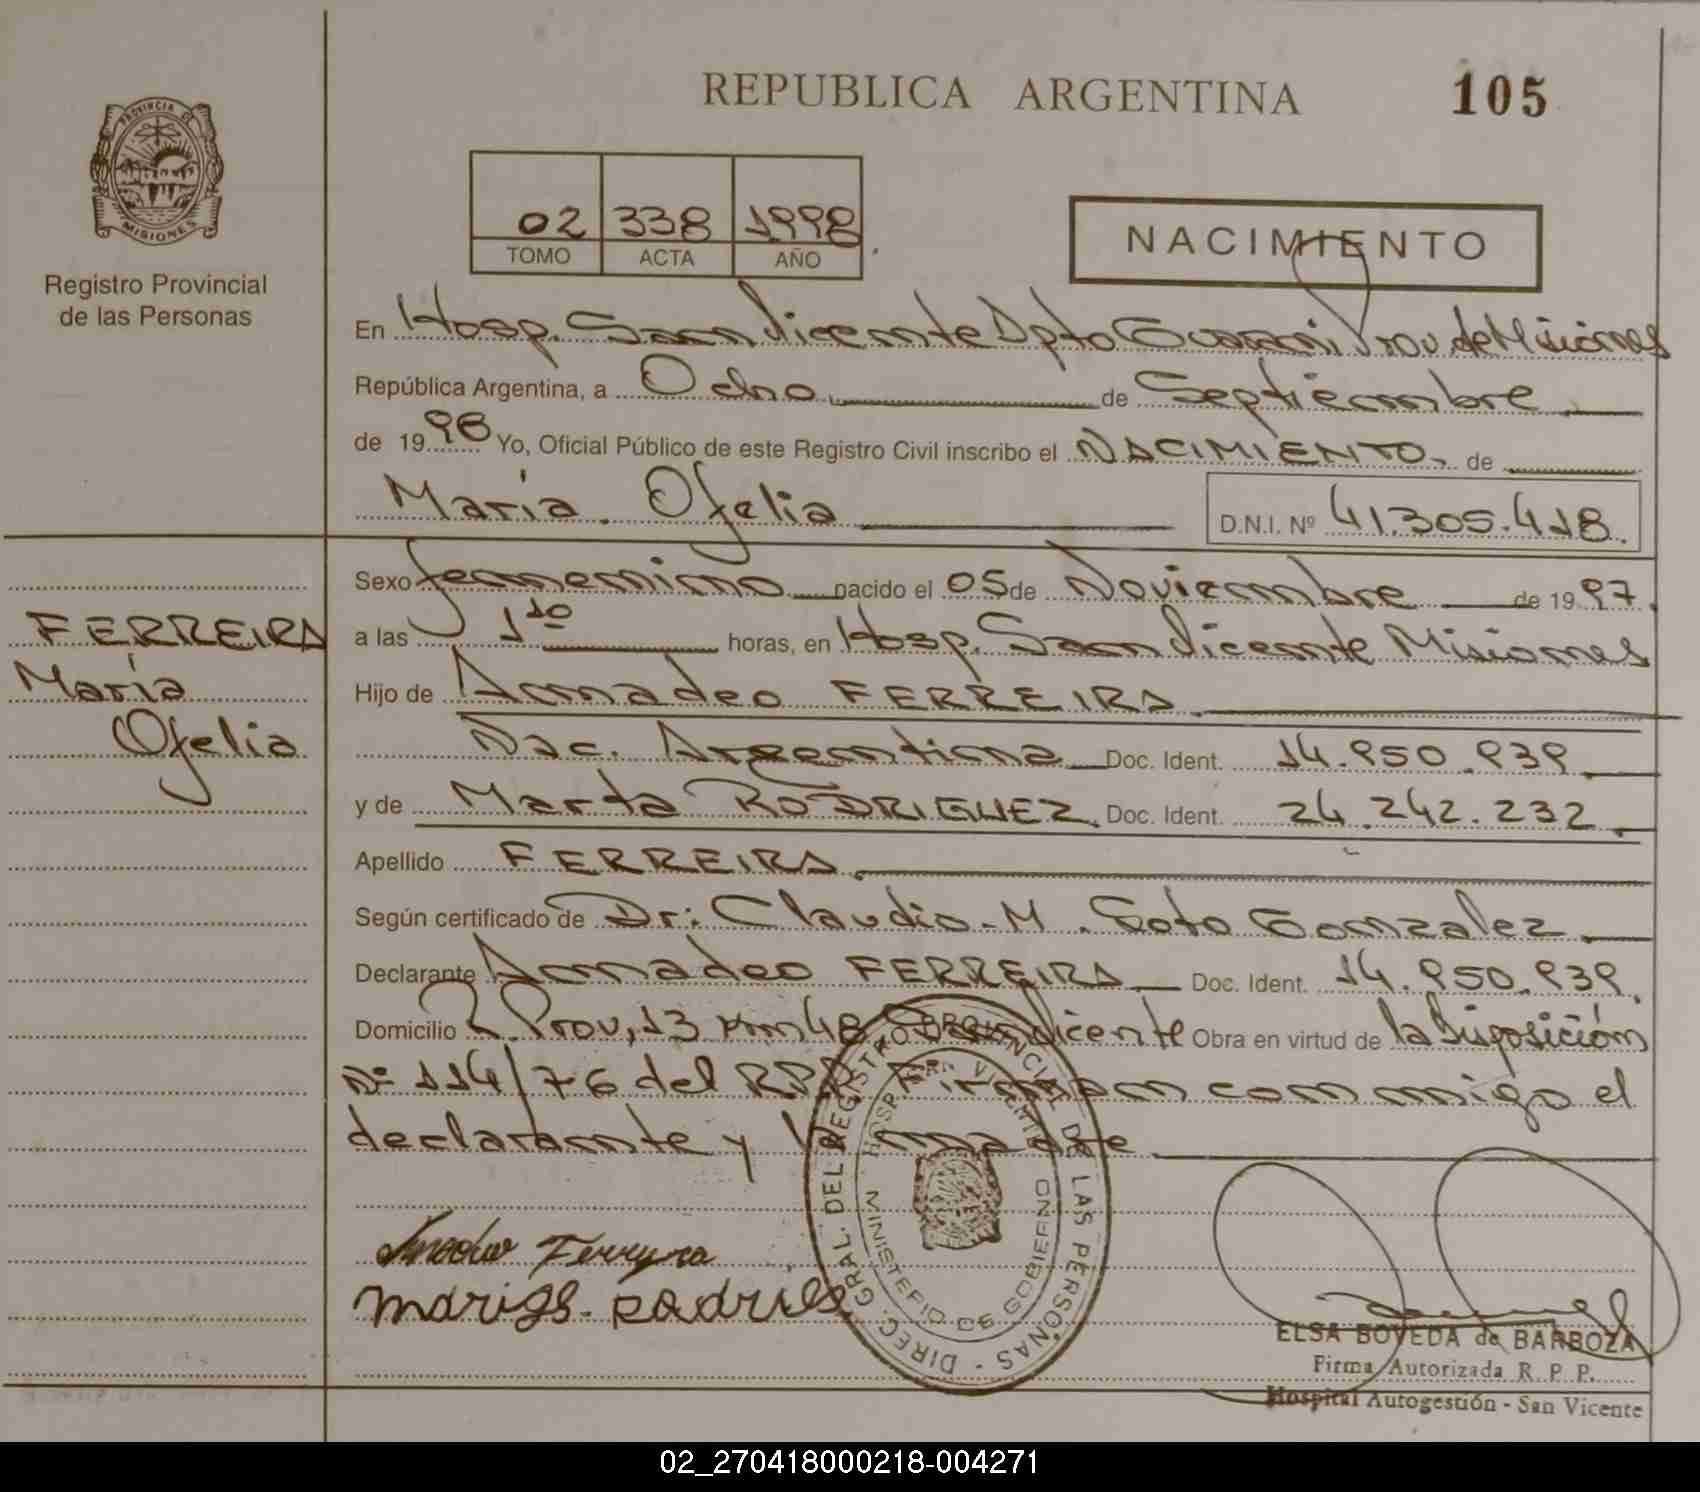 REPUBLICA ARGENTINA 105
PROVINCIA DE
MISIONES
Registro Provincial
de las Personas
02 338 1998
TOMO ACTA AÑO
NACIMIENTO
En Hosp. San Vicente Dpto Guarani Prov. de Misiones
República Argentina, a Ocho de Septiembre
de 1998 Yo, Oficial Público de este Registro Civil inscribo el NACIMIENTO, de
María Ofelia D.N.I. Nº 41.305.418.
Sexo femenino nacido el 05 de Noviembre de 1997.
a las 1 10 horas, en Hosp. San Vicente Misiones
Hijo de Amadeo FERREIRA
Nac. Argentina Doc. Ident. 14.950.939
y de Marta RODRIGUEZ Doc. Ident. 24.242.232
Apellido FERREIRA
Según certificado de Dr: Claudio M. Soto Gonzalez
Declarante Amadeo FERREIRA Doc. Ident. 14.950.939.
Domicilio R. Prov, 13 Km 48 San Vicente Obra en virtud de la Disposición
Nº 114/76 del RPP Firman conmigo el
declarante y la madre
FERREIRA
María
Ofelia
DIREC. GRAL. DEL REGISTRO PROVINCIAL DE LAS PERSONAS
MINISTERIO DE GOBIERNO
ELSA BOVEDA de BARBOZA
Firma Autorizada R. P. P.
Hospital Autogestión - San Vicente
02_270418000218-004271